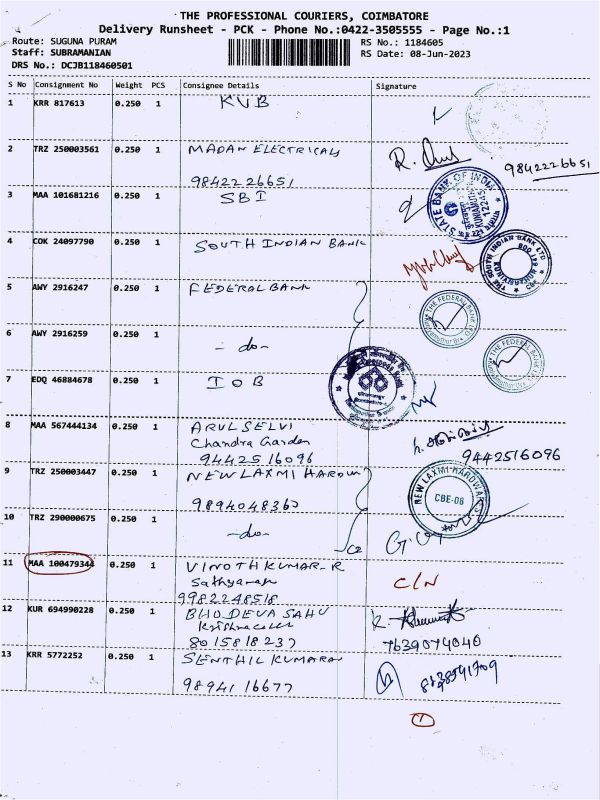 THE PROFESSIONAL COURIERS, COIMBATORE
Delivery Runsheet - PCK - Phone No.:0422-3505555 - Page No.:1
Route: SUGUNA PURAM
RS No.: 1184605
Staff: SUBRAMANIAN
RS Date: 08-Jun-2023
DRS No.: DCJB118460501
S No Consignment No Weight PCS Consignee Details Signature
1 KRR 817613 0.250 1 KVB
2 TRZ 250003561 0.250 1 MADAN ELECTRICALS
9842226651
9842226651
3 MAA 101681216 0.250 1 SBI
STATE BANK OF INDIA
4 COK 24097790 0.250 1 SOUTH INDIAN BANK
THE SOUTH INDIAN BANK LTD
5 AWY 2916247 0.250 1 FEDERAL BANK
THE FEDERAL BANK LTD
6 AWY 2916259 0.250 1 -do-
THE FEDERAL BANK LTD
7 EDQ 46884678 0.250 1 IOB
8 MAA 567444134 0.250 1 ARULSELVI
Chandra Garden
9442516096
9442516096
9 TRZ 250003447 0.250 1 NEW LAXMI HARDW
9894048363
NEW LAXMI HARDWARES
CBE-08
10 TRZ 290000675 0.250 1 -do-
11 MAA 100479344 0.250 1 VINOTHKUMAR-R
C/N
9982248518
12 KUR 694990228 0.250 1 BHODEVA SAHU
8015818237
7639074040
13 KRR 5772252 0.250 1 SENTHIL KUMARAN
9894116677
1